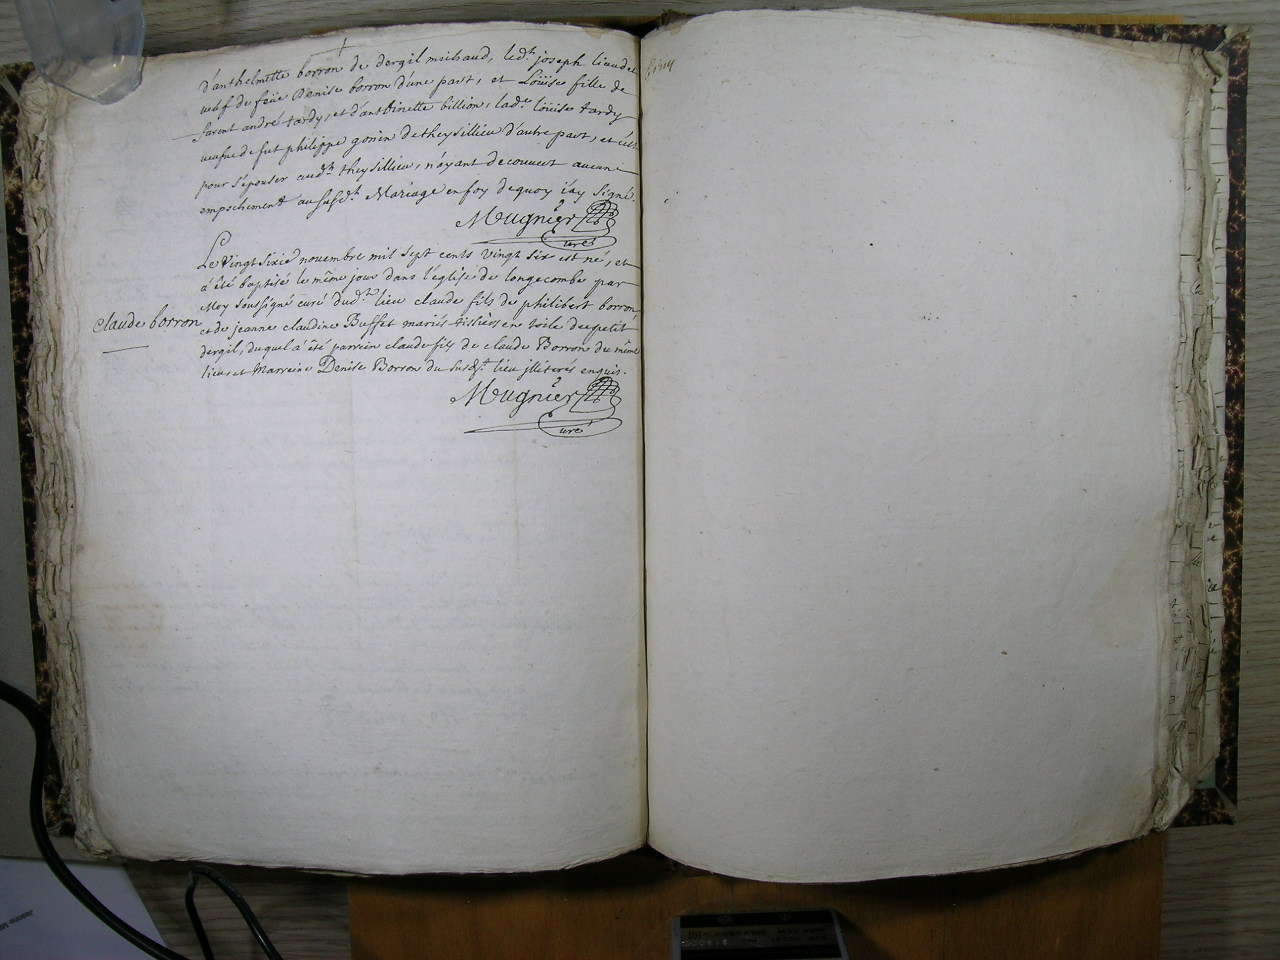 d'anthelmette borron de dergil michaud, led.t joseph lieudel
veuf de feüe Denise borron d'une part, et Loüise fille de
furent andré tardy, et d'anthinette billion, lad.e loüise tardy
veufve de fut philippe gonin de theysillieu d'autre part, et c'ést
pour s'épouser aud.t theysillieu, n'ayant decouvert aucune
empechement au susd.t Mariage en foy dequoy i'ay signé.
Mugnier
curé
Le vingt sixie novembre mil sept cents vingt six est né, et
a été baptisé le même jour dans l'église de longecombe par
Moy soussigné curé dud.t lieu claude fils de philibert borron
claude borron
et de jeanne claudine Buffet mariés tissiers en toile du petit
dergil, duquel a été parrein claude fils de claude Borron du même
lieu, et Marreine Denise Borron du susd.t lieu illiterés enquis.
Mugnier
curé